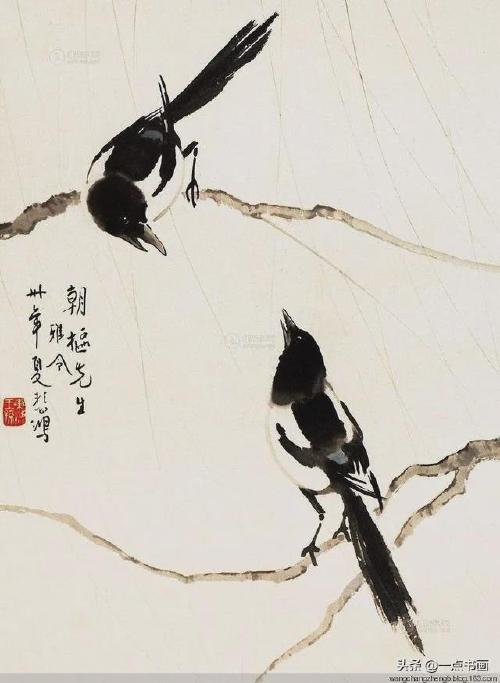 朝樞先生
雅令
卅年夏悲鴻
头条 @一点书画
wangchangzhengb.blog.163.com